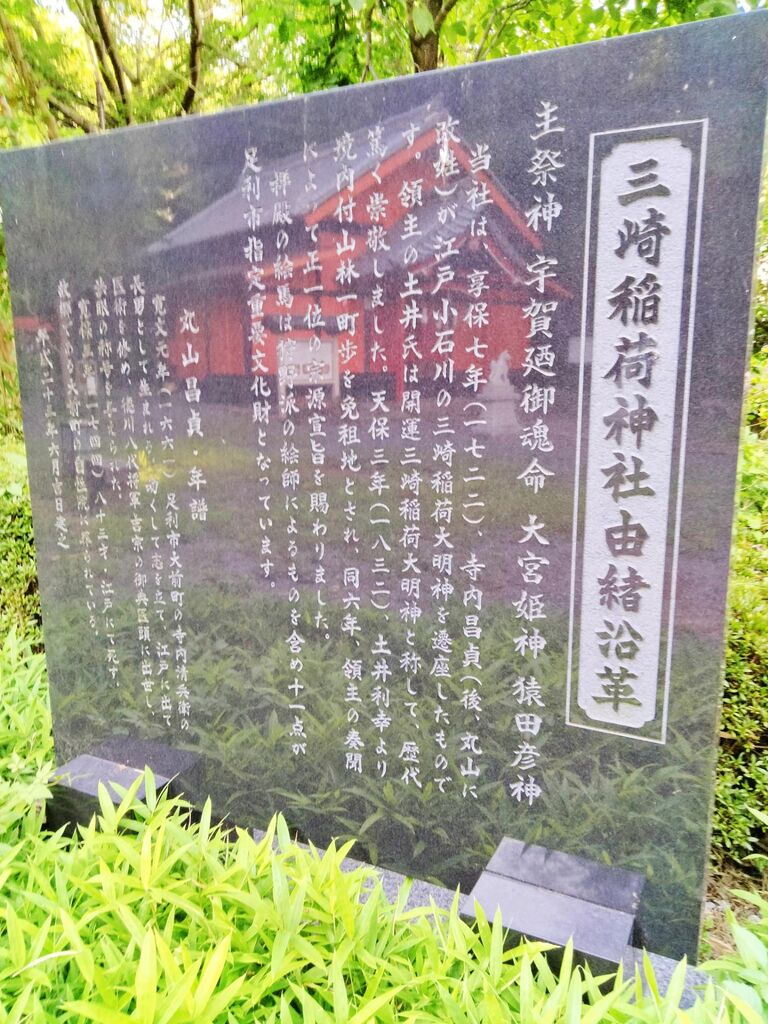 三崎稲荷神社由緒沿革
主祭神 宇賀廼御魂命 大宮姫神 猿田彦神
当社は、享保七年(一七二二)、寺内昌貞(後、丸山に
改姓)が江戸小石川の三崎稲荷大明神を遷座したもので
す。領主の土井氏は開運三崎稲荷大明神と称して、歴代
篤く崇敬しました。天保三年(一八三二)、土井利幸より
境内付山林一町歩を免租地とされ、同六年、領主の奏聞
によって正一位の 源宣旨を賜わりました。
拝殿の絵馬は 派の絵師によるものを含め十一点が
足利市指定重要文化財となっています。
丸山昌貞・年譜
寛文元年(一六六一)足利市大前町の寺内清兵衛の
長男として生まれ、幼くして志を立て、江戸に出て
医術を修め、徳川八代将軍吉宗の御典医頭に出世し、
法眼の称号を た。
(一七四四)八十三才、江戸にて死す。
大前町の られている。
平成二十三年六月吉日建之